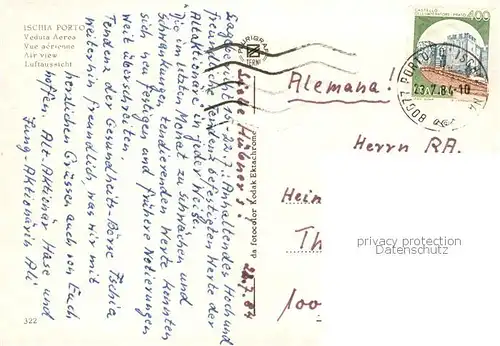 ISCHIA PORTO
Veduta Aerea
Vue aérienne
Air view
Luftansicht
322
da fotocolor Kodak Ektachrome
Liebe Hübners!
22.7.84
Lagebericht 15.-22.7.: Anhaltendes Hoch und
freundliche Tendenz befestigten Werte der
Altaktionäre in jeder Weise.
Die im letzten Monat zu schwachen und
Schwankungen tendierenden Werte konnten
sich neu festigen und frühere Notierungen
weit überschreiten.
Tendenz der Gesundheits-Börse Ischia
weiterhin freundlich, was wir mit
herzlichen Grüssen auch von Euch
hoffen. Alt-Aktionär Hase und
Jung-Aktionärin Ali
CASTELLO
400
80077 PORTO D'ISCHIA NA
23.7.84-10
TERNI
Alemana.
Herrn RA.
Hein
Th
100
privacy protection
Datenschutz